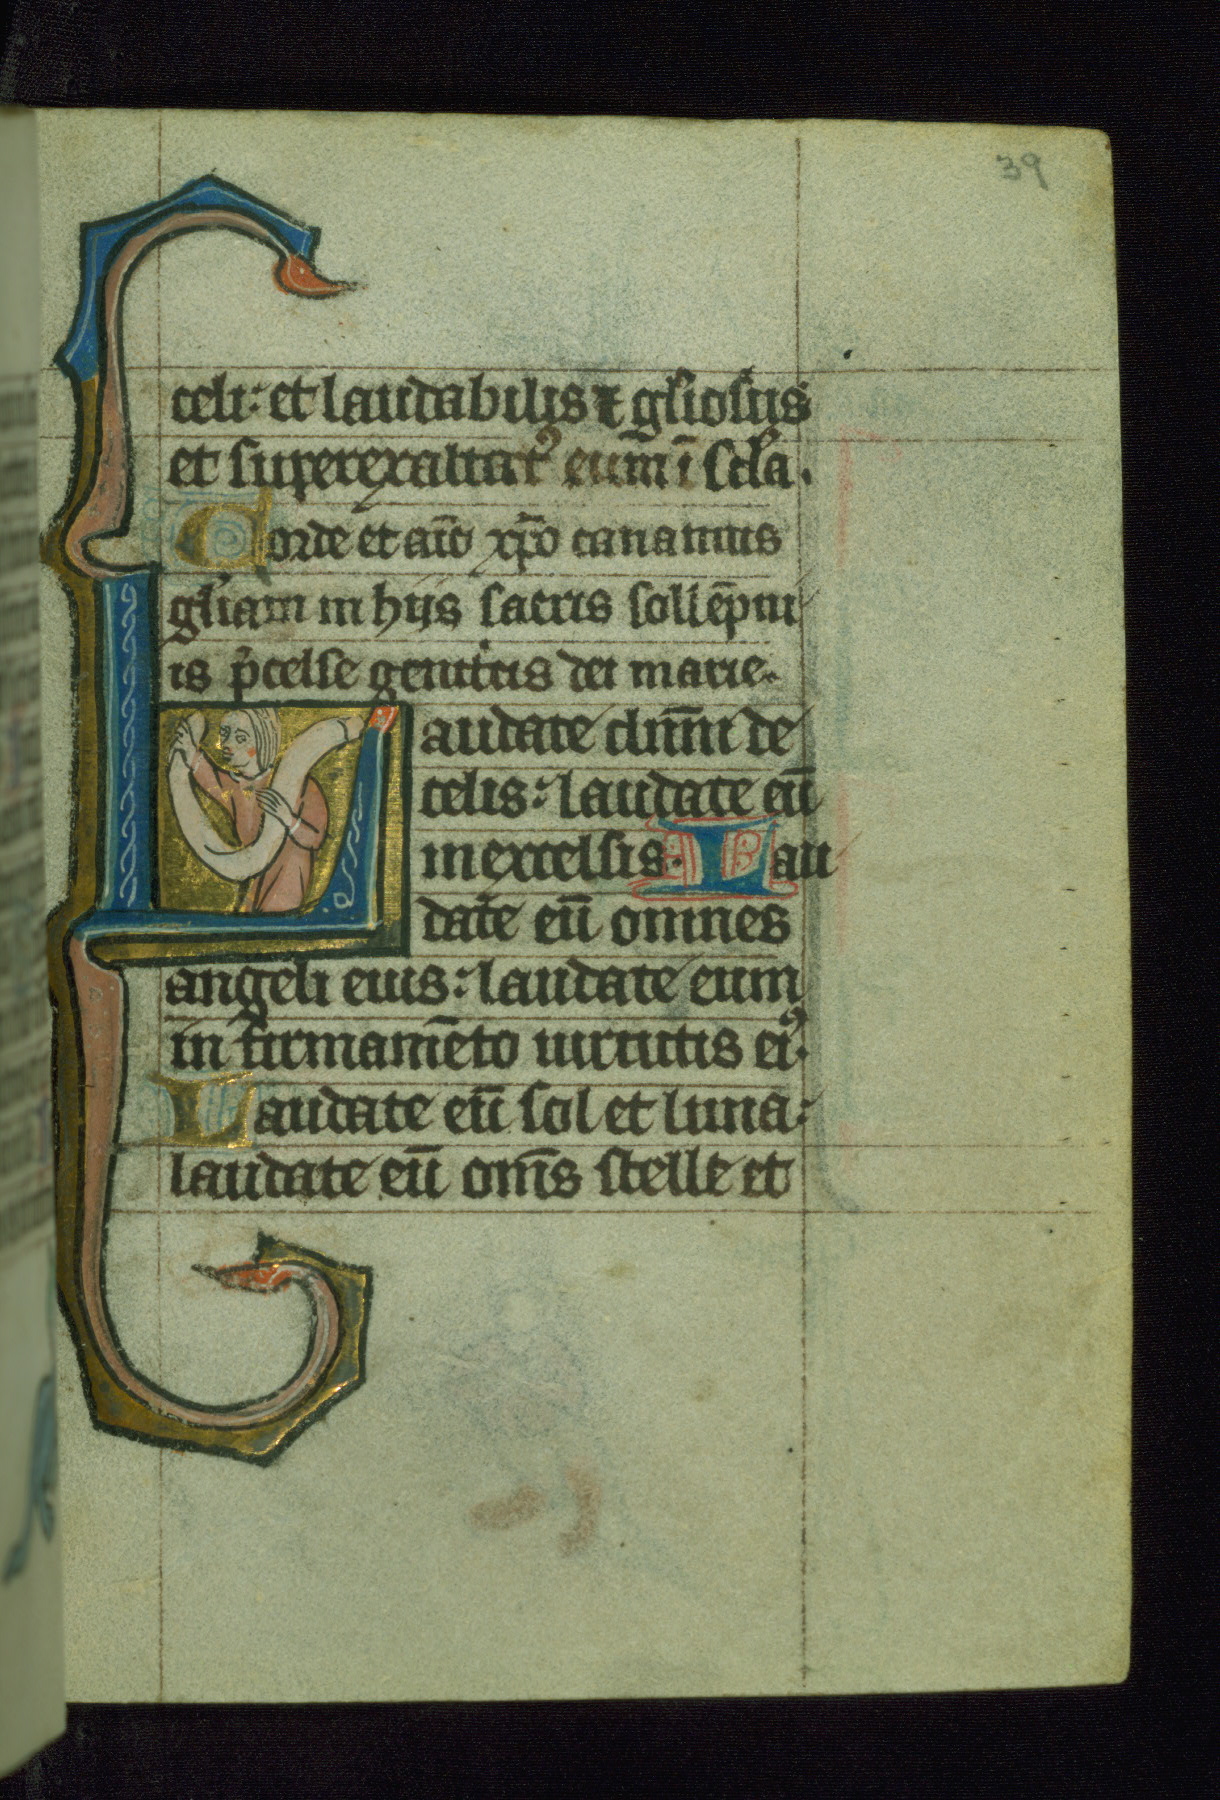 39
celi: et laudabilis ⁊ gl̃iosus
et superexaltatꝰ eum̄ ī scl̃a.
Corde et aīo xp̄o canamus
gl̃iam in hijs sacris sollēpni
is p̄celse genitcis dei marie.
Laudate dn̄m de
celis: laudate eū
in excelsis. Lau
date eū omnes
angeli eius: laudate eum
in firmamēto uirtutis eiꝰ.
Laudate eū sol et luna:
laudate eū om̄s stelle et